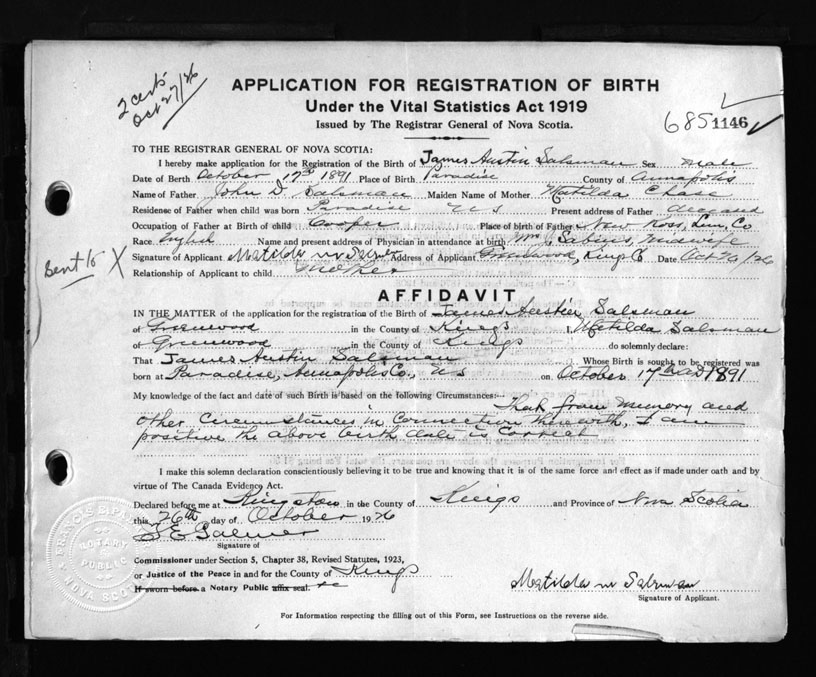 2 certs
Oct 27/26
APPLICATION FOR REGISTRATION OF BIRTH
Under the Vital Statistics Act 1919
Issued by The Registrar General of Nova Scotia.
685 1146
TO THE REGISTRAR GENERAL OF NOVA SCOTIA:
I hereby make application for the Registration of the Birth of James Austin Salsman Sex male
Date of Birth October 17th 1891 Place of Birth Paradise County of Annapolis
Name of Father John D. Salsman Maiden Name of Mother Matilda Chase
Residense of Father when child was born Paradise N S Present address of Father deceased
Occupation of Father at Birth of child Cooper Place of birth of Father New Ross, Lun, Co
Race English Name and present address of Physician in attendance at birth Mrs Sabins, midwife
Sent to X
Signature of Applicant Matilda Salsman Address of Applicant Greenwood, Kings Co Date Oct 26/26
Relationship of Applicant to child Mother
AFFIDAVIT
IN THE MATTER of the application for the registration of the Birth of James Austin Salsman
of Greenwood in the County of Kings I, Matilda Salsman
of Greenwood in the County of Kings do solemnly declare:
That James Austin Salsman Whose Birth is sought to be registered was
born at Paradise, Annapolis Co., N S on October 17th AD 1891
My knowledge of the fact and date of such Birth is based on the following Circumstances:- That from memory and
other circumstances in connection therewith, I am
positive the above birth date is correct
I make this solemn declaration conscientiously believing it to be true and knowing that it is of the same force and effect as if made under oath and by
virtue of The Canada Evidence Act.
Declared before me at Kingston in the County of Kings and Province of Nova Scotia
this 26th day of October 1926
Signature of
Commissioner under Section 5, Chapter 38, Revised Statutes, 1923,
or Justice of the Peace in and for the County of Kings
If sworn before a Notary Public affix seal.
Matilda Salsman
Signature of Applicant.
For Information respecting the filling out of this Form, see Instructions on the reverse side.
NOTARY
PUBLIC
NOVA SCOTIA